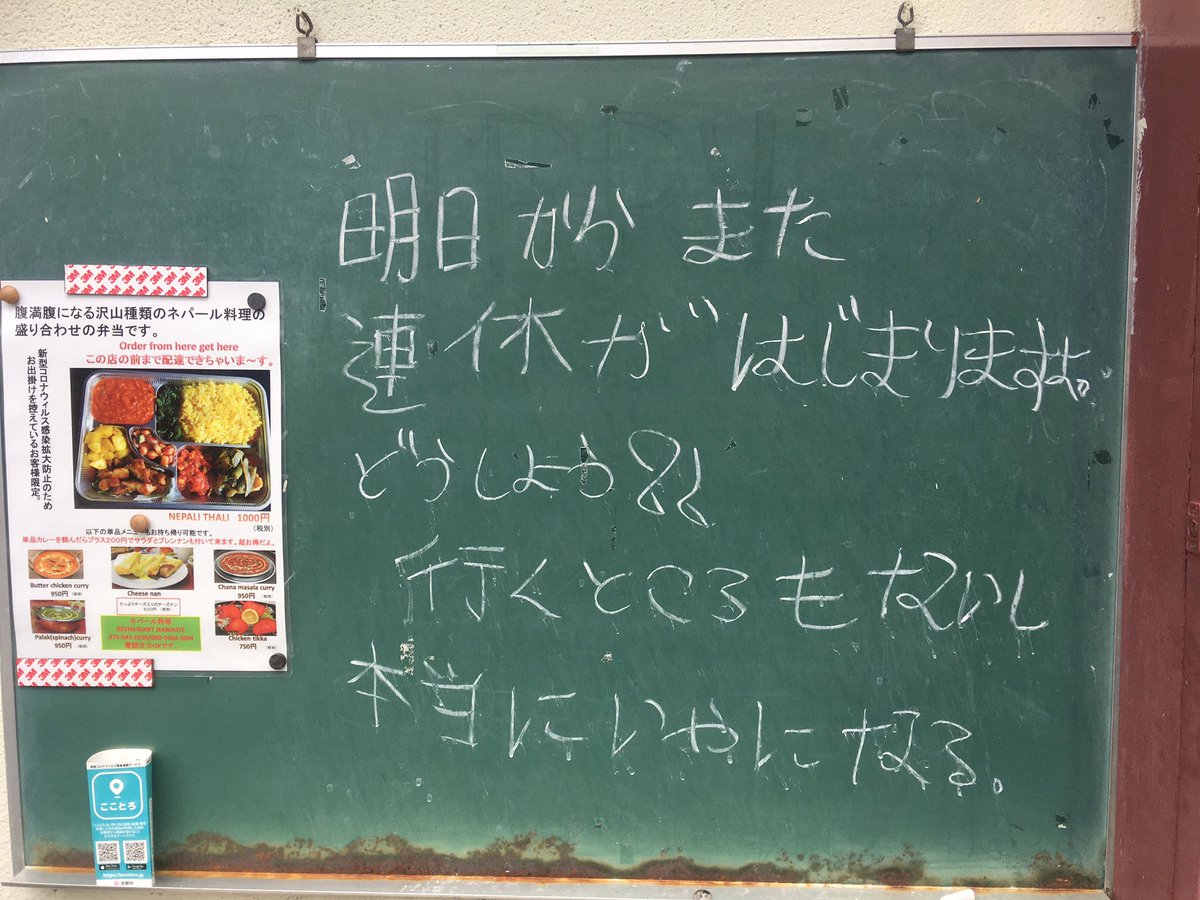 明日からまた
連休がはじまりますよ。
どうしよう??
行くところもないし
本当にいやになる。
3M
3M
腹満腹になる沢山種類のネパール料理の
盛り合わせの弁当です。
Order from here get here
この店の前まで配達できちゃいま〜す。
新型コロナウィルス感染拡大防止のため
お出掛けを控えているお客様限定。
NEPALI THALI 1000円
(税別)
以下の単品メニューもお持ち帰り可能です。
単品カレーを頼んだらプラス200円でサラダとプレンナンも付いて来ます。超お得だよ。
Butter chicken curry
950円 (税別)
Cheese nan
たっぷりチーズ入りのチーズナン
800円 (税別)
Chana masala curry
950円 (税別)
Palak(spinach)curry
950円 (税別)
ネパール料理
RESTAURANT NAMASTE
Chicken tikka
750円 (税別)
こことろ
京都府